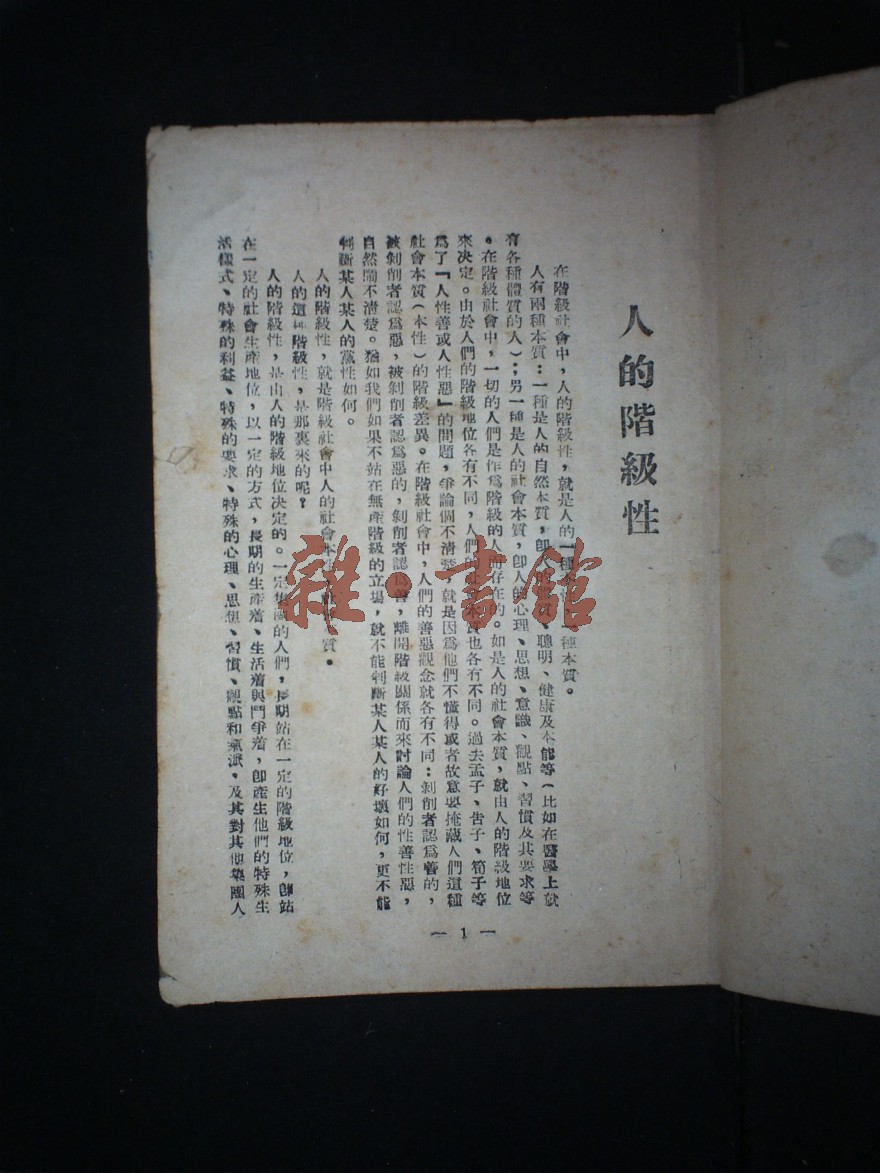 人的階級性
在階級社會中，人的階級性，就是人的一種本性，一種本質。
人有兩種本質：一種是人的自然本質，卽人的體質、聰明、健康及本能等（比如在醫學上就
有各種體質的人）；另一種是人的社會本質，卽人的心理、思想、意識、觀點、習慣及其要求等
。在階級社會中，一切的人們是作爲階級的人而存在的。如是人的社會本質，就由人的階級地位
來决定。由於人們的階級地位各有不同，人們的社會本質也各有不同。過去孟子、告子、荀子等
爲了『人性善或人性惡』的問題，爭論個不清楚，就是因爲他們不懂得或者故意要掩藏人們這種
社會本質（本性）的階級差異。在階級社會中，人們的善惡觀念就各有不同：剝削者認爲善的，
被剝削者認爲惡，被剝削者認爲惡的，剝削者認爲善，離開階級關係而來討論人們的性善性惡，
自然鬧不清楚。猶如我們如果不站在無產階級的立場，就不能判斷某人某人的好壞如何，更不能
判斷某人某人的黨性如何。
人的階級性，就是階級社會中人的社會本性 質。
人的這種階級性，是那裏來的呢？
人的階級性，是由人的階級地位决定的。一定集團的人們，長期站在一定的階級地位，卽站
在一定的社會生產地位，以一定的方式，長期的生產着、生活着與鬥爭着，卽產生他們的特殊生
活樣式、特殊的利益、特殊的要求、特殊的心理、思想、習慣、觀點和氣派，及其對其他集團人
— 1 —
雜·書館